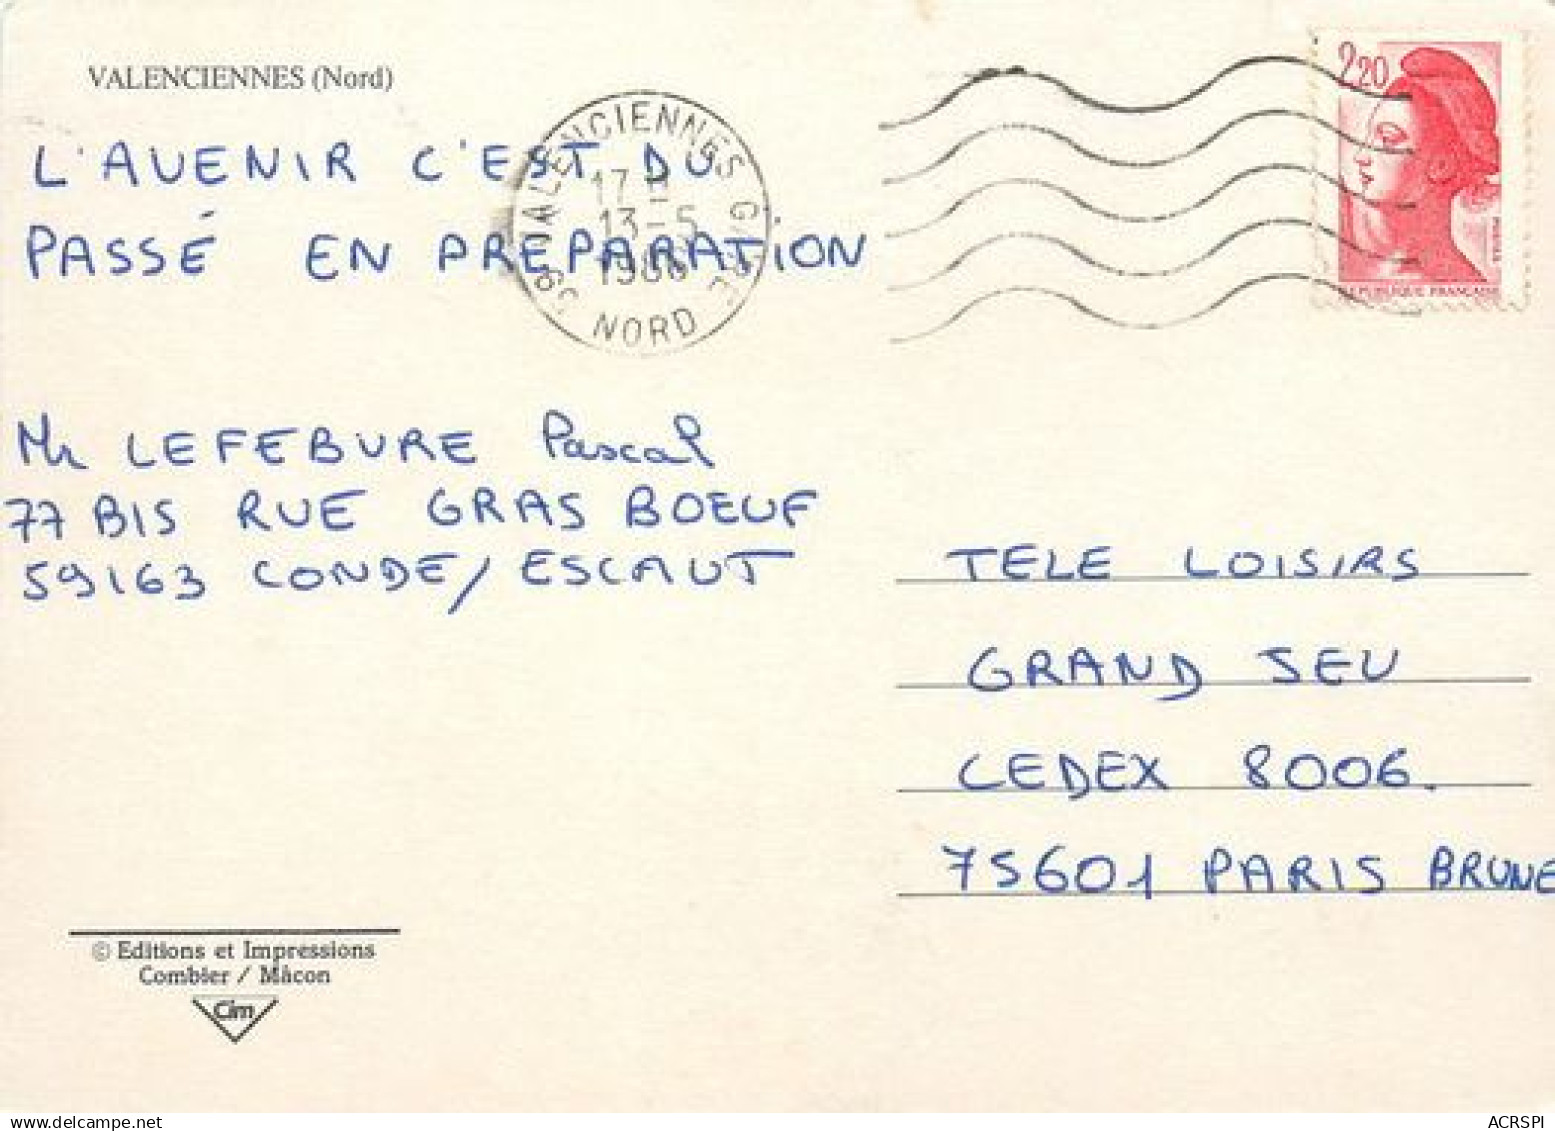 VALENCIENNES (Nord)
L'AVENIR C'EST DU
PASSÉ EN PREPARATION
VALENCIENNES GARE
17 H
13-5
1988
59 NORD
2,20
REPUBLIQUE FRANÇAISE
Mr LEFEBURE Pascal
77 BIS RUE GRAS BOEUF
59163 CONDE/ESCAUT
TELE LOISIRS
GRAND JEU
CEDEX 8006.
75601 PARIS BRUNE
© Editions et Impressions
Combier / Mâcon
Cim
ACRSPI